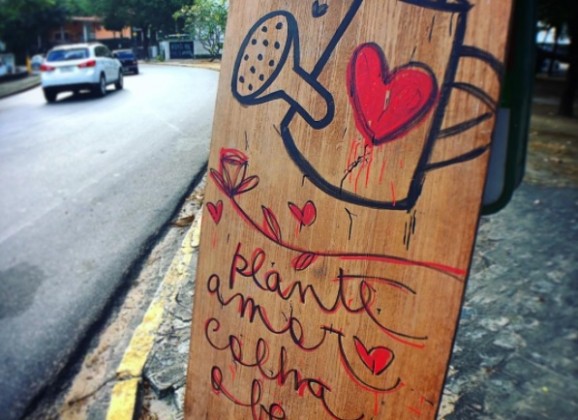 plante
amor
colha
o be